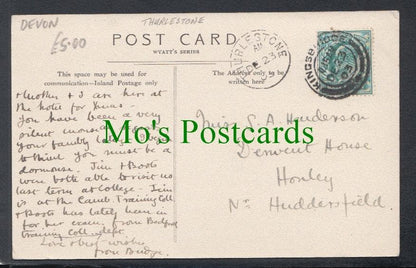 DEVON
THURLESTONE
£5.00
POST CARD
WYATT'S SERIES
This space may be used for communication—Inland Postage only
The Address only to be written here
THURLESTONE
23
KINGSBRIDGE
Mother & I are here at
the hotel for Xmas.
You have been a very
silent mouse
your family
to think you must be a
dormouse. Jim & Boots
were both able to visit us
last term at college - Jim is
at the Camb. Training Coll
& Boots has lately been in
for her exam. from Bedford
Training Coll.
Love & best wishes
from
Miss S. A. Henderson
Derwent House
Honley
Nr Huddersfield.
Mo's Postcards